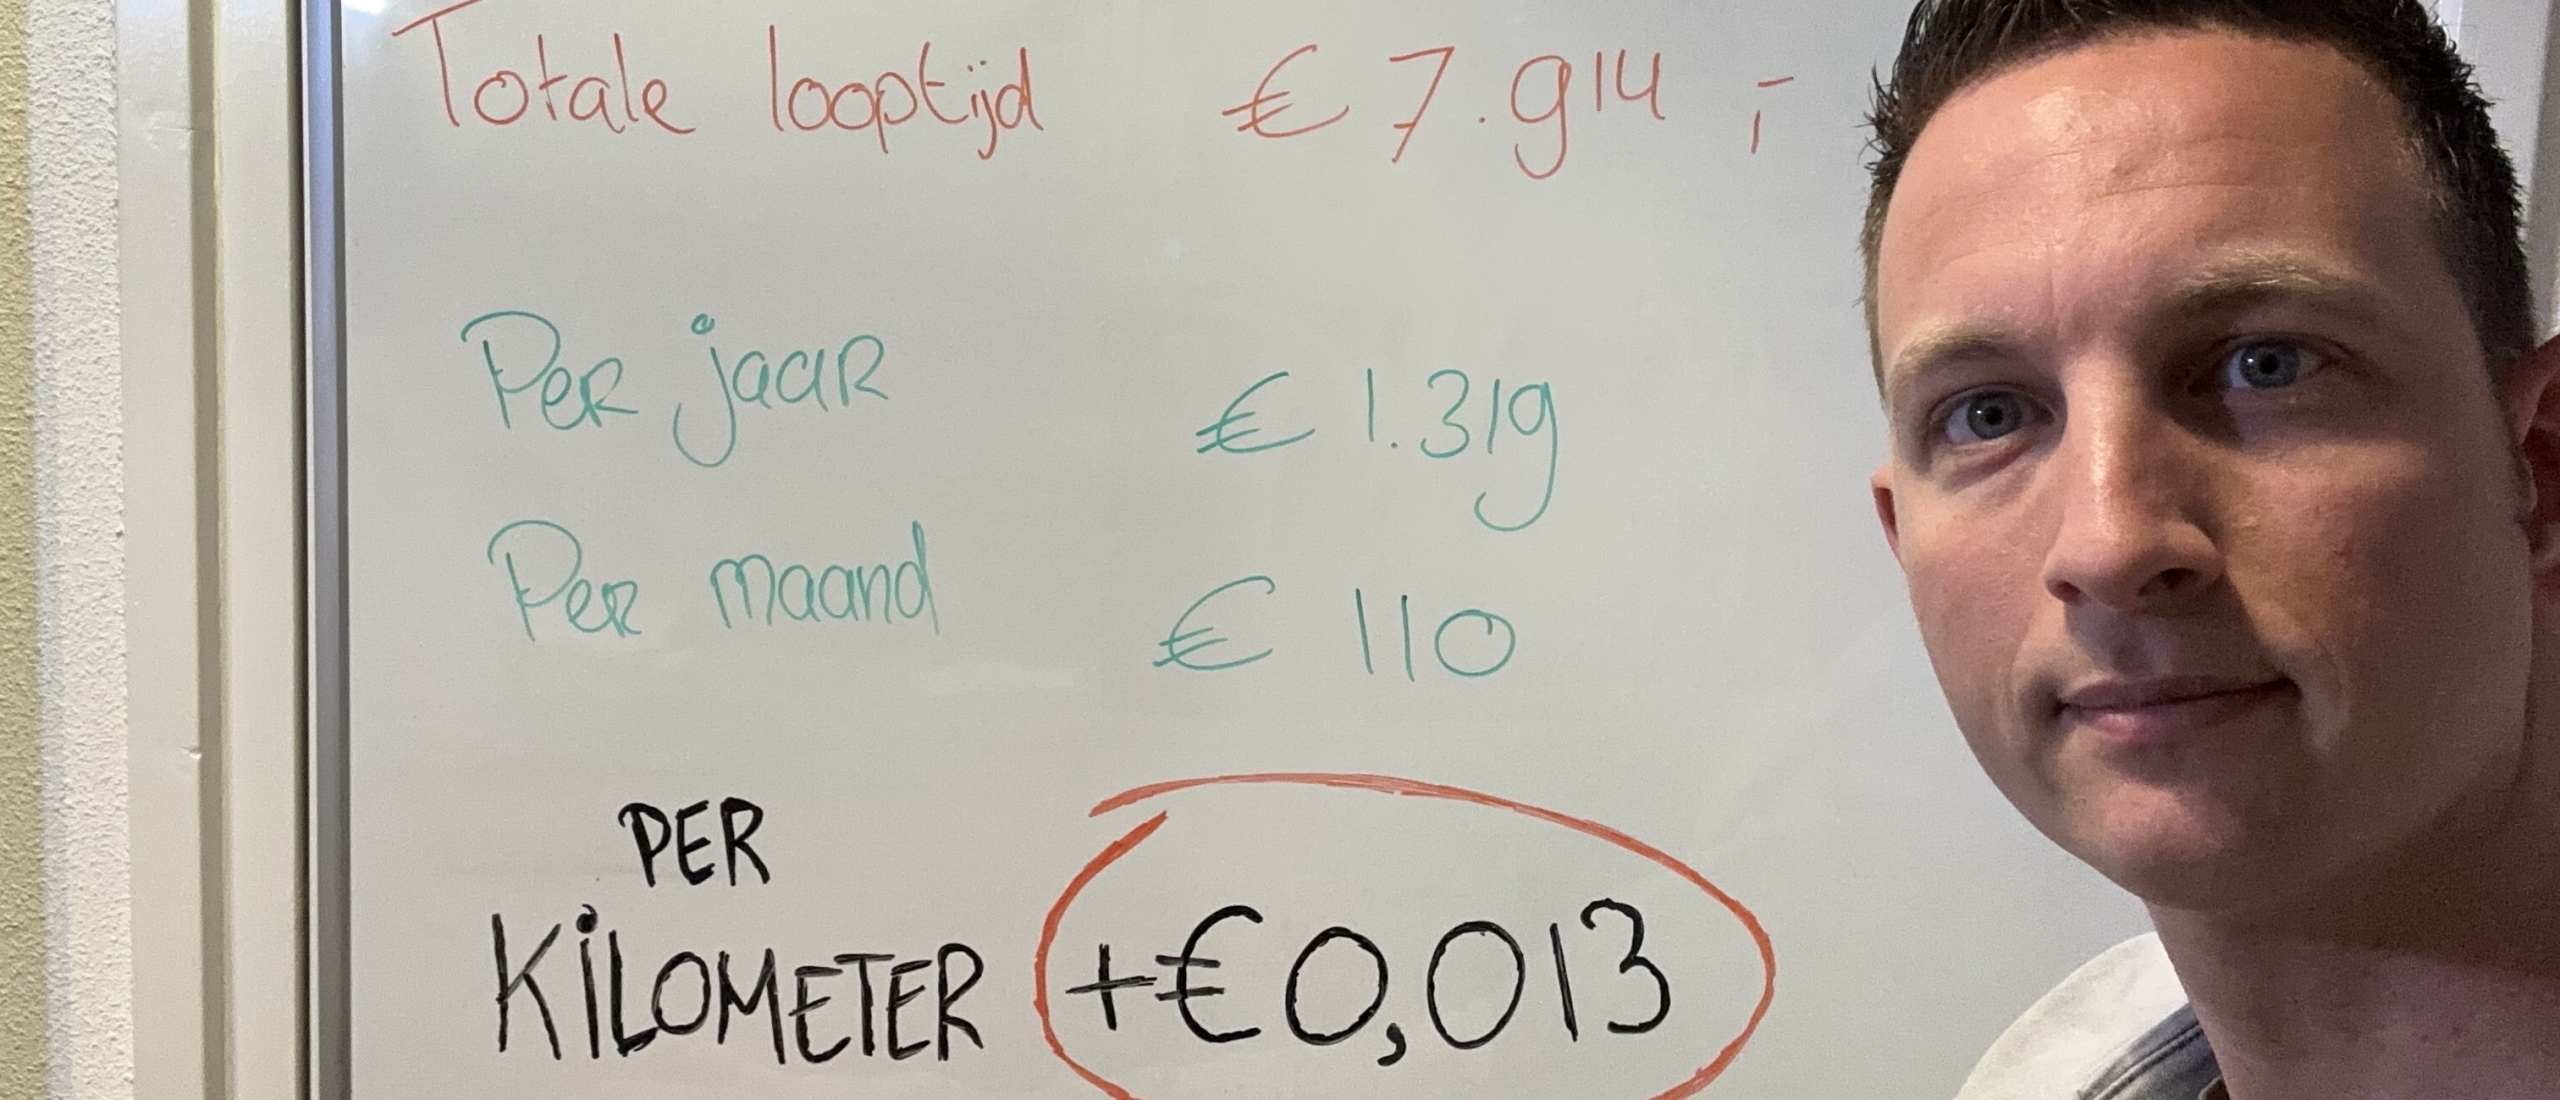 Totale looptijd € 7.914 ,-
Per jaar € 1.319
Per maand € 110
PER
KILOMETER +€0,013